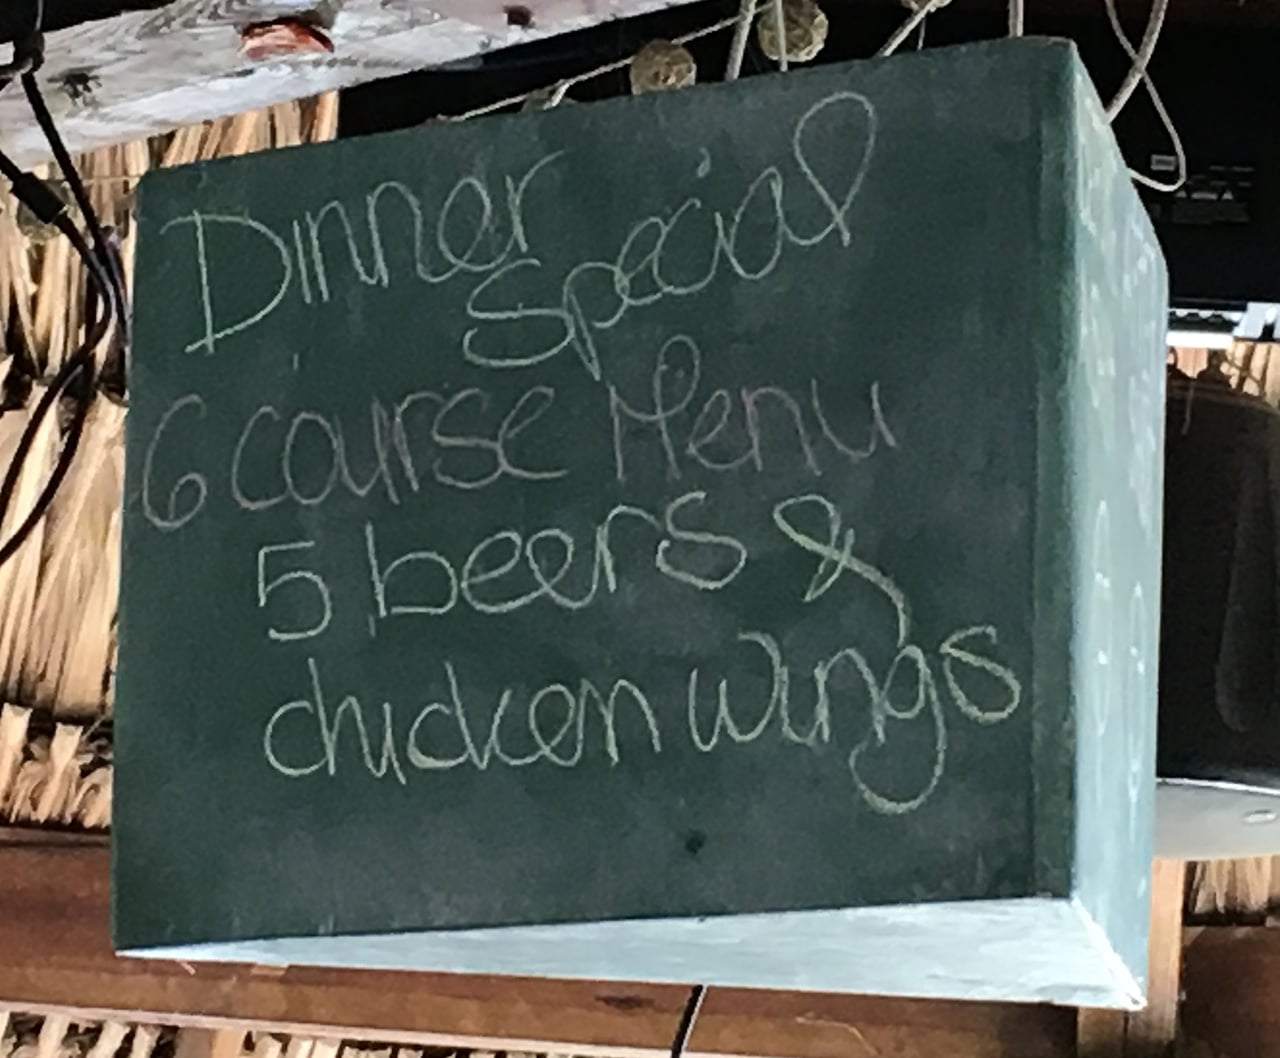 Dinner
Special
6 course Menu
5 beers &
chicken wings